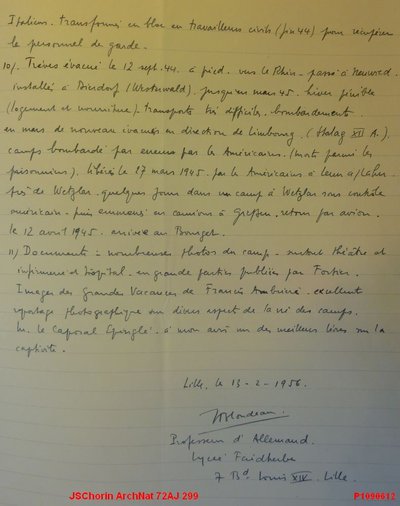 Italiens. transformés en bloc en travailleurs civils (fin 44) pour récupérer
le personnel de garde.
10/. Trèves évacué le 12 sept. 44. à pied. vers le Rhin - passé à Neuwied.
installé à (Westerwald). jusqu'en mars 45. hiver pénible
(logement et nourriture). transports très difficiles. bombardements.
en mars de nouveau évacués en direction de Limbourg. (Stalag XII A).
camps bombardé par erreur par les Américains. (morts parmi les
prisonniers). libéré le 27 mars 1945. par les Américains à Leun a/Lahn.
près de Wetzlar. quelques jours dans un camp à Wetzlar sous contrôle
américain. puis emmenés en camions à . retour par avion.
le 12 avril 1945. arrivée au Bourget.
11/ Documents : nombreuses photos du camp - surtout théâtre et
infirmerie et hôpital. en grande partie publiées par
Images des Grandes Vacances de Francis Ambrière. excellent
reportage photographique sur divers aspects de la vie des camps.
le Caporal Epinglé. à mon avis un des meilleurs livres sur la
captivité.
Lille, le 13-2-1956.
Professeur d'Allemand.
Lycée Faidherbe
7 Bd Louis XIV. Lille.
JSChorin ArchNat 72AJ 299
P1090612